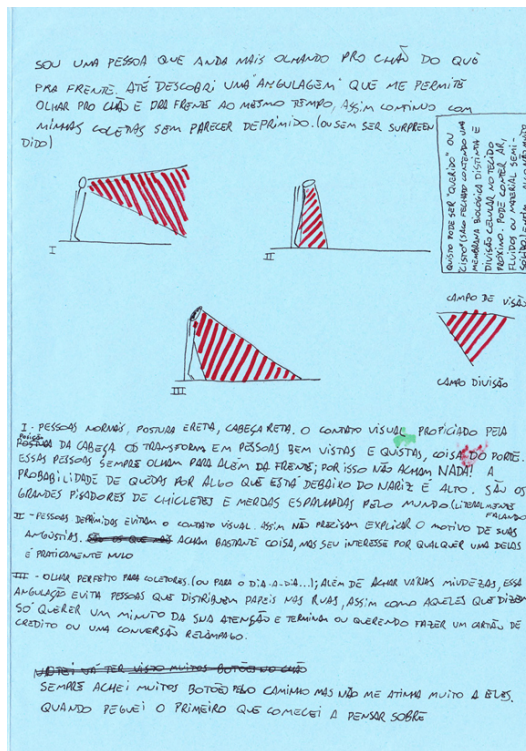 SOU UMA PESSOA QUE ANDA MAIS OLHANDO PRO CHÃO DO QUÊ
PRA FRENTE. ATÉ DESCOBRI UMA "ANGULAGEM" QUE ME PERMITE
OLHAR PRO CHÃO E PRA FRENTE AO MESMO TEMPO, ASSIM CONTINUO COM
MINHAS COLETAS SEM PARECER DEPRIMIDO. (OU SEM SER SURPREEN
DIDO)
QUISTO PODE SER "QUERIDO" OU
CISTO (SACO FECHADO CONTENDO UMA
MEMBRANA BIOLÓGICA DISTINTA E
DIVISÃO CELULAR NO TECIDO
PRÓXIMO. PODE CONTER AR,
FLUIDOS OU MATERIAL SEMI-
I
II
III
CAMPO DE VISÃO
CAMPO DIVISÃO
I - PESSOAS NORMAIS, POSTURA ERETA, CABEÇA RETA. O CONTATO VISUAL PROFICIADO PELA
POSIÇÃO
POSTURA DA CABEÇA OS TRANSFORMA EM PESSOAS BEM VISTAS E QUISTAS, COISA DO PORTE.
ESSAS PESSOAS SEMPRE OLHAM PARA ALÉM DA FRENTE; POR ISSO NÃO ACHAM NADA! A
PROBABILIDADE DE QUEDAS POR ALGO QUE ESTÁ DEBAIXO DO NARIZ É ALTO. SÃO OS
GRANDES PISADORES DE CHICLETES E MERDAS ESPALHADAS PELO MUNDO (LITERALMENTE
FALANDO
II - PESSOAS DEPRIMIDAS EVITAM O CONTATO VISUAL. ASSIM NÃO PRECISAM EXPLICAR O MOTIVO DE SUAS
ANGÚSTIAS. ACHAM BASTANTE COISA, MAS SEU INTERESSE POR QUALQUER UMA DELAS
É PRATICAMENTE NULO
III - OLHAR PERFEITO PARA COLETORES. (OU PARA O DIA-A-DIA...); ALÉM DE ACHAR VÁRIAS MIUDEZAS, ESSA
ANGULAÇÃO EVITA PESSOAS QUE DISTRIBUEM PAPEIS NAS RUAS, ASSIM COMO AQUELES QUE DIZEM
SÓ QUERER UM MINUTO DA SUA ATENÇÃO E TERMINA OU QUERENDO FAZER UM CARTÃO DE
CREDITO OU UMA CONVERSÃO RELÂMPAGO.
JÁ TER VISTO MUITOS BOTÕES NO CHÃO
SEMPRE ACHEI MUITOS BOTÕES PELO CAMINHO MAS NÃO ME ATINHA MUITO A ELES.
QUANDO PEGUEI O PRIMEIRO QUE COMECEI A PENSAR SOBRE